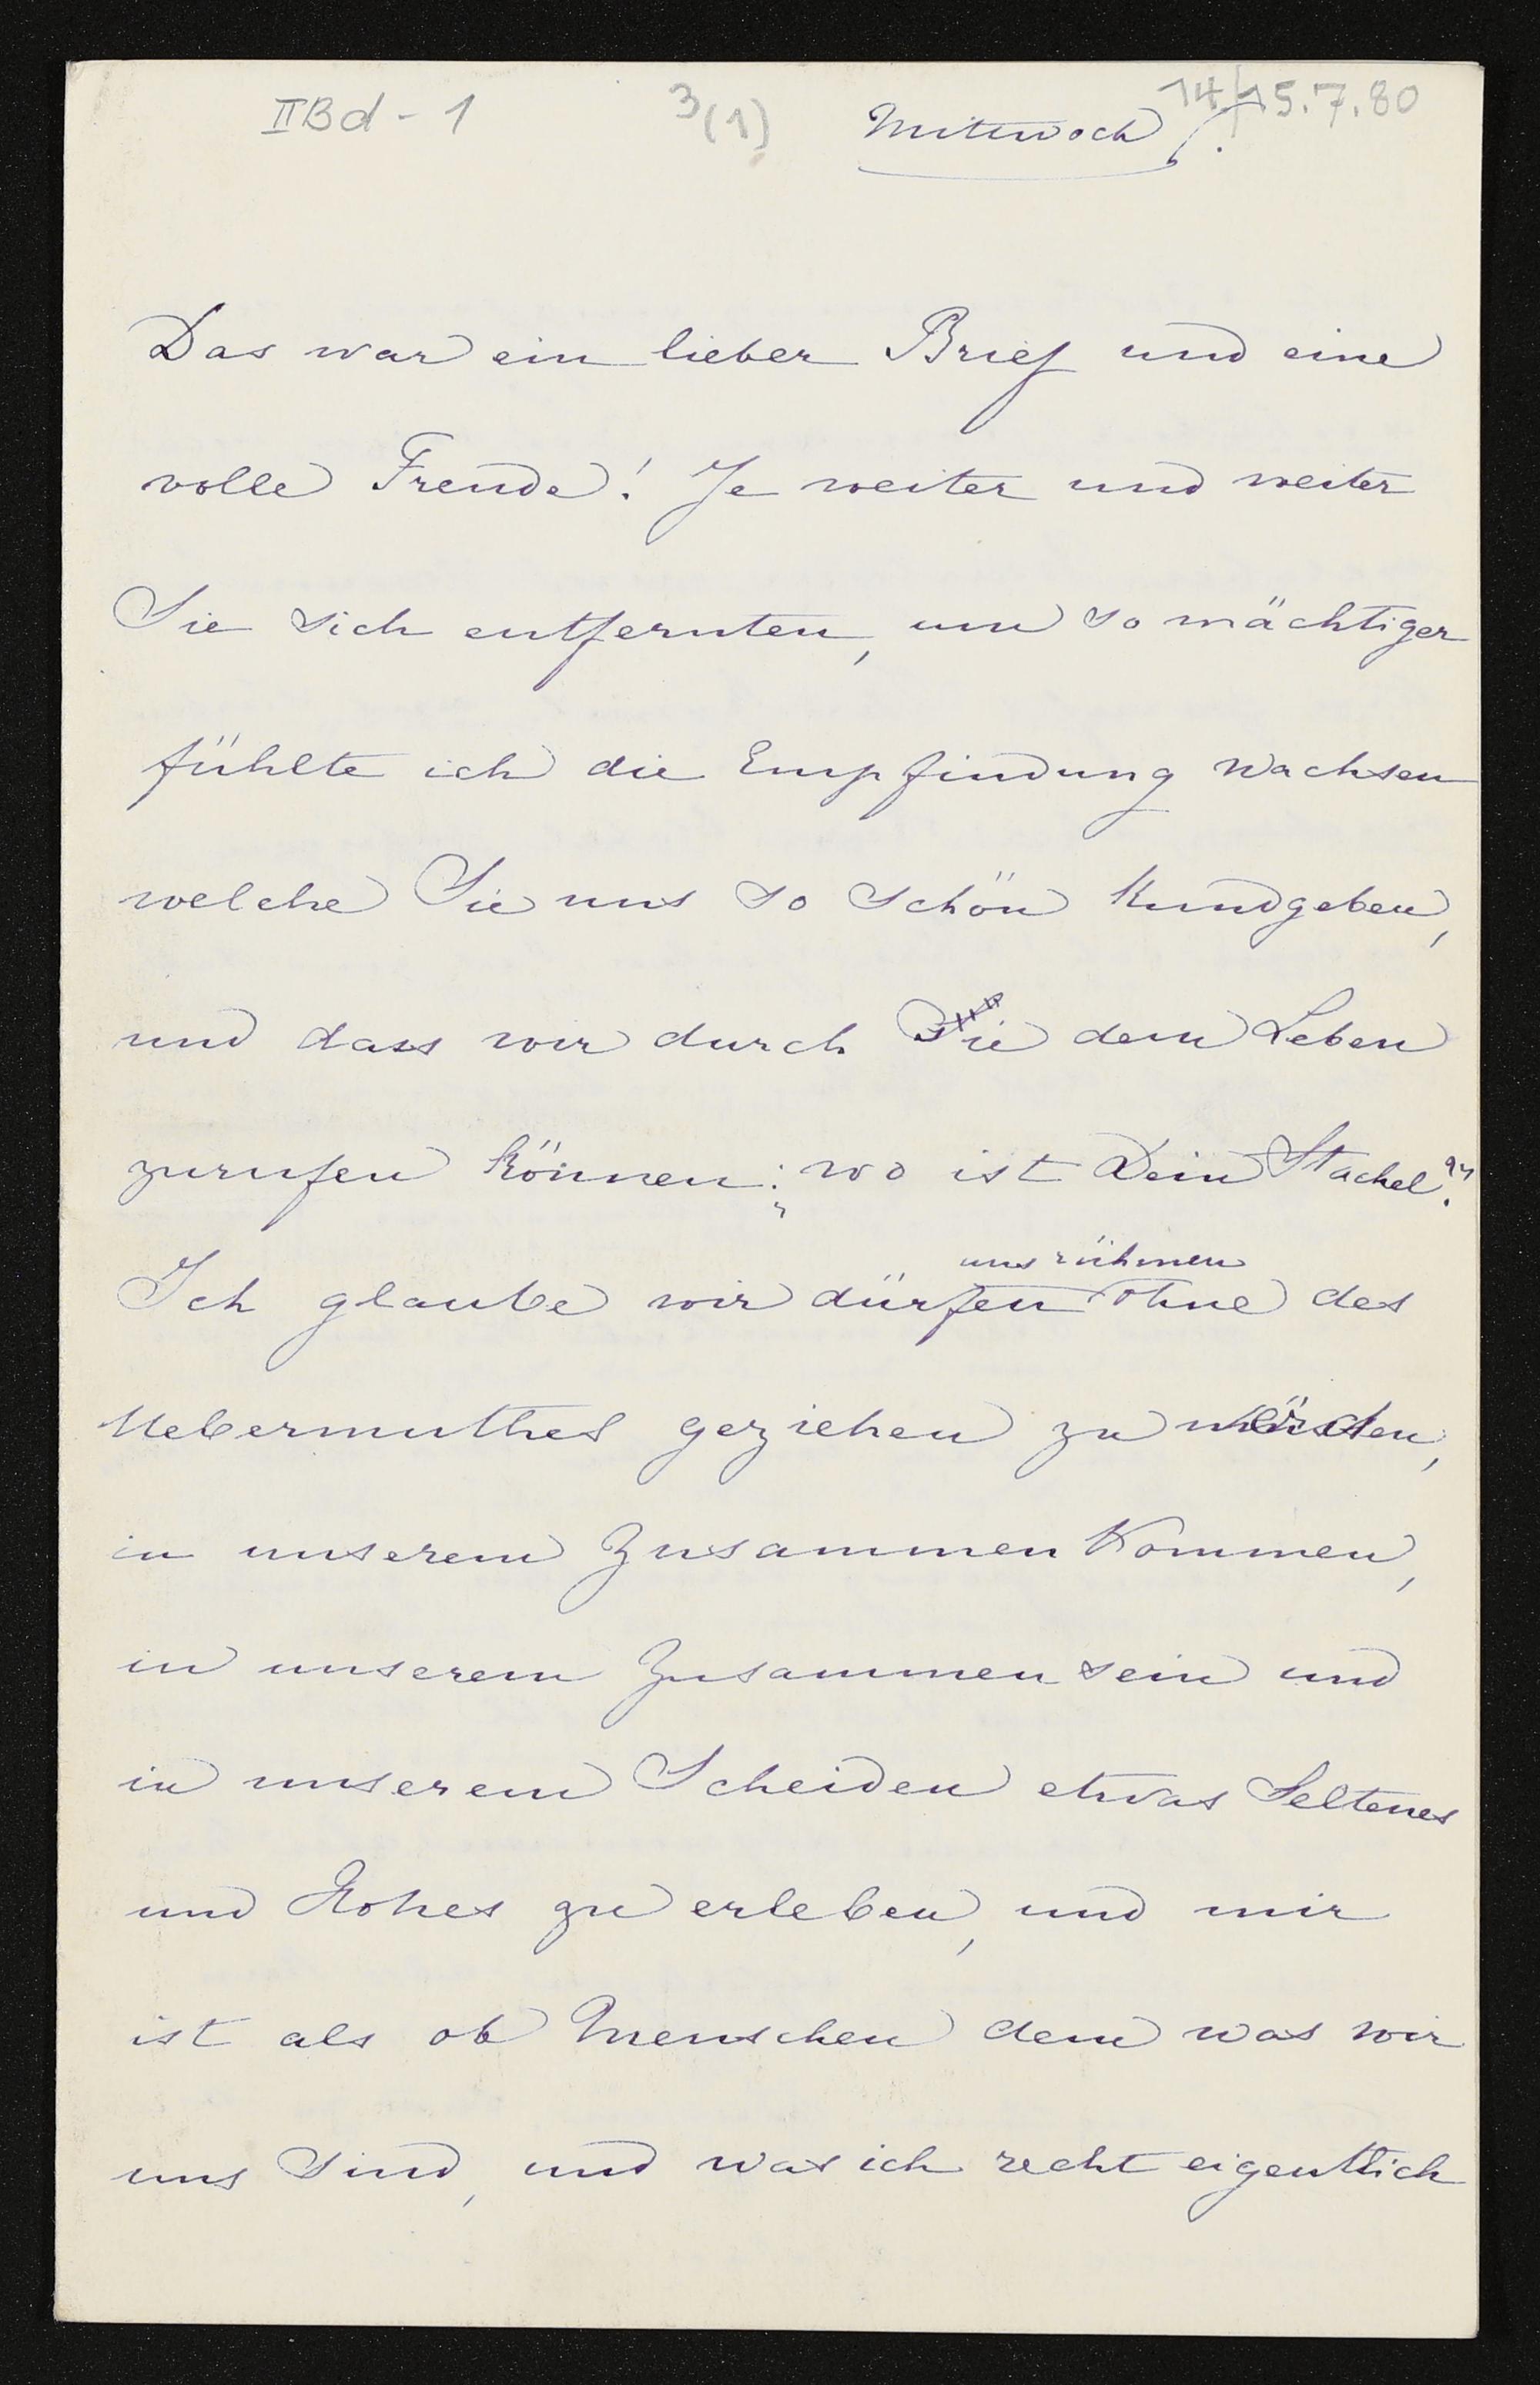 IIBd - 1
3(1)
14/15.7.80
Mittwoch.
Das war ein lieber Brief und eine
volle Freude! Je weiter und weiter
Sie sich entfernten, um so mächtiger
fühlte ich die Empfindung wachsen
welche Sie uns so schön kundgeben,
und dass wir durch Sie dem Leben
zurufen können: „wo ist Dein Stachel?“
uns rühmen
Ich glaube wir dürfen ohne des
Uebermuthes geziehen zu werden,
in unserem Zusammenkommen,
in unserem Zusammensein und
in unserem Scheiden etwas Seltenes
und Hohes zu erleben, und mir
ist als ob Menschen dem was wir
uns sind, und was ich recht eigentlich